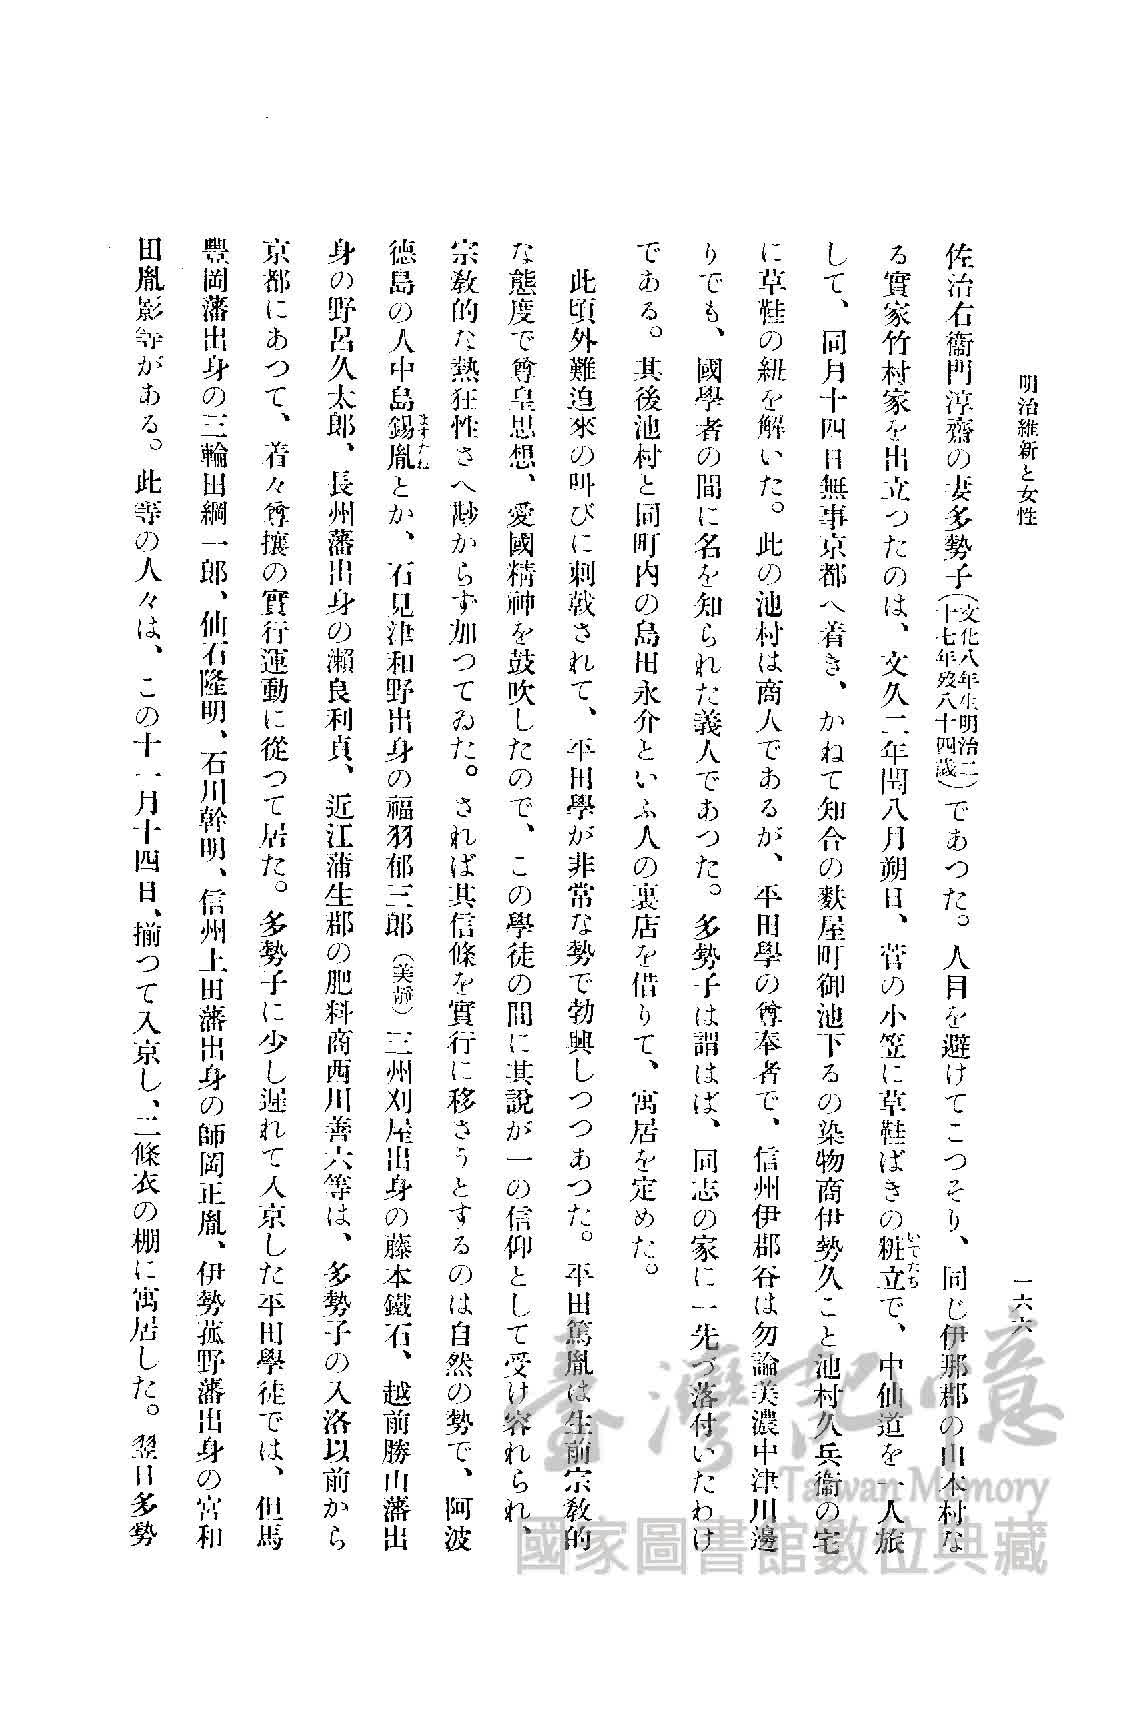 明治維新と女性
一六六
佐治右衞門淳齋の妻多勢子(文化八年生明治二十七年歿八十四歲)であつた。人目を避けてこつそり、同じ伊那郡の山本村な
る實家竹村家を出立つたのは、文久二年閏八月朔日、菅の小笠に草鞋ばきの粧立で、中仙道を一人旅
いでたち
して、同月十四日無事京都へ着き、かねて知合の麩屋町御池下るの染物商伊勢久こと池村久兵衞の宅
に草鞋の紐を解いた。此の池村は商人であるが、平田學の尊奉者で、信州伊郡谷は勿論美濃中津川邊
りでも、國學者の間に名を知られた義人であつた。多勢子は謂はば、同志の家に一先づ落付いたわけ
である。其後池村と同町內の島田永介といふ人の裏店を借りて、寓居を定めた。
此頃外難迫來の叫びに刺戟されて、平田學が非常な勢で勃興しつつあつた。平田篤胤は生前宗敎的
な態度で尊皇思想、愛國精神を鼓吹したので、この學徒の間に其說が一の信仰として受け容れられ、
宗敎的な熱狂性さへ尠からず加つてゐた。されば其信條を實行に移さうとするのは自然の勢で、阿波
德島の人中島錫胤とか、石見津和野出身の福羽郁三郞(美靜)三州刈屋出身の藤本鐵石、越前勝山藩出
ますたね
身の野呂久太郞、長州藩出身の瀨良利貞、近江蒲生郡の肥料商西川善六等は、多勢子の入洛以前から
京都にあつて、着々尊攘の實行運動に從つて居た。多勢子に少し遲れて入京した平田學徒では、但馬
豐岡藩出身の三輪田綱一郞、仙石隆明、石川幹明、信州上田藩出身の師岡正胤、伊勢菰野藩出身の宮和
田胤影等がある。此等の人々は、この十一月十四日、揃つて入京し、二條衣の棚に寓居した。翌日多勢
臺灣記憶
Taiwan Memory
國家圖書館數位典藏